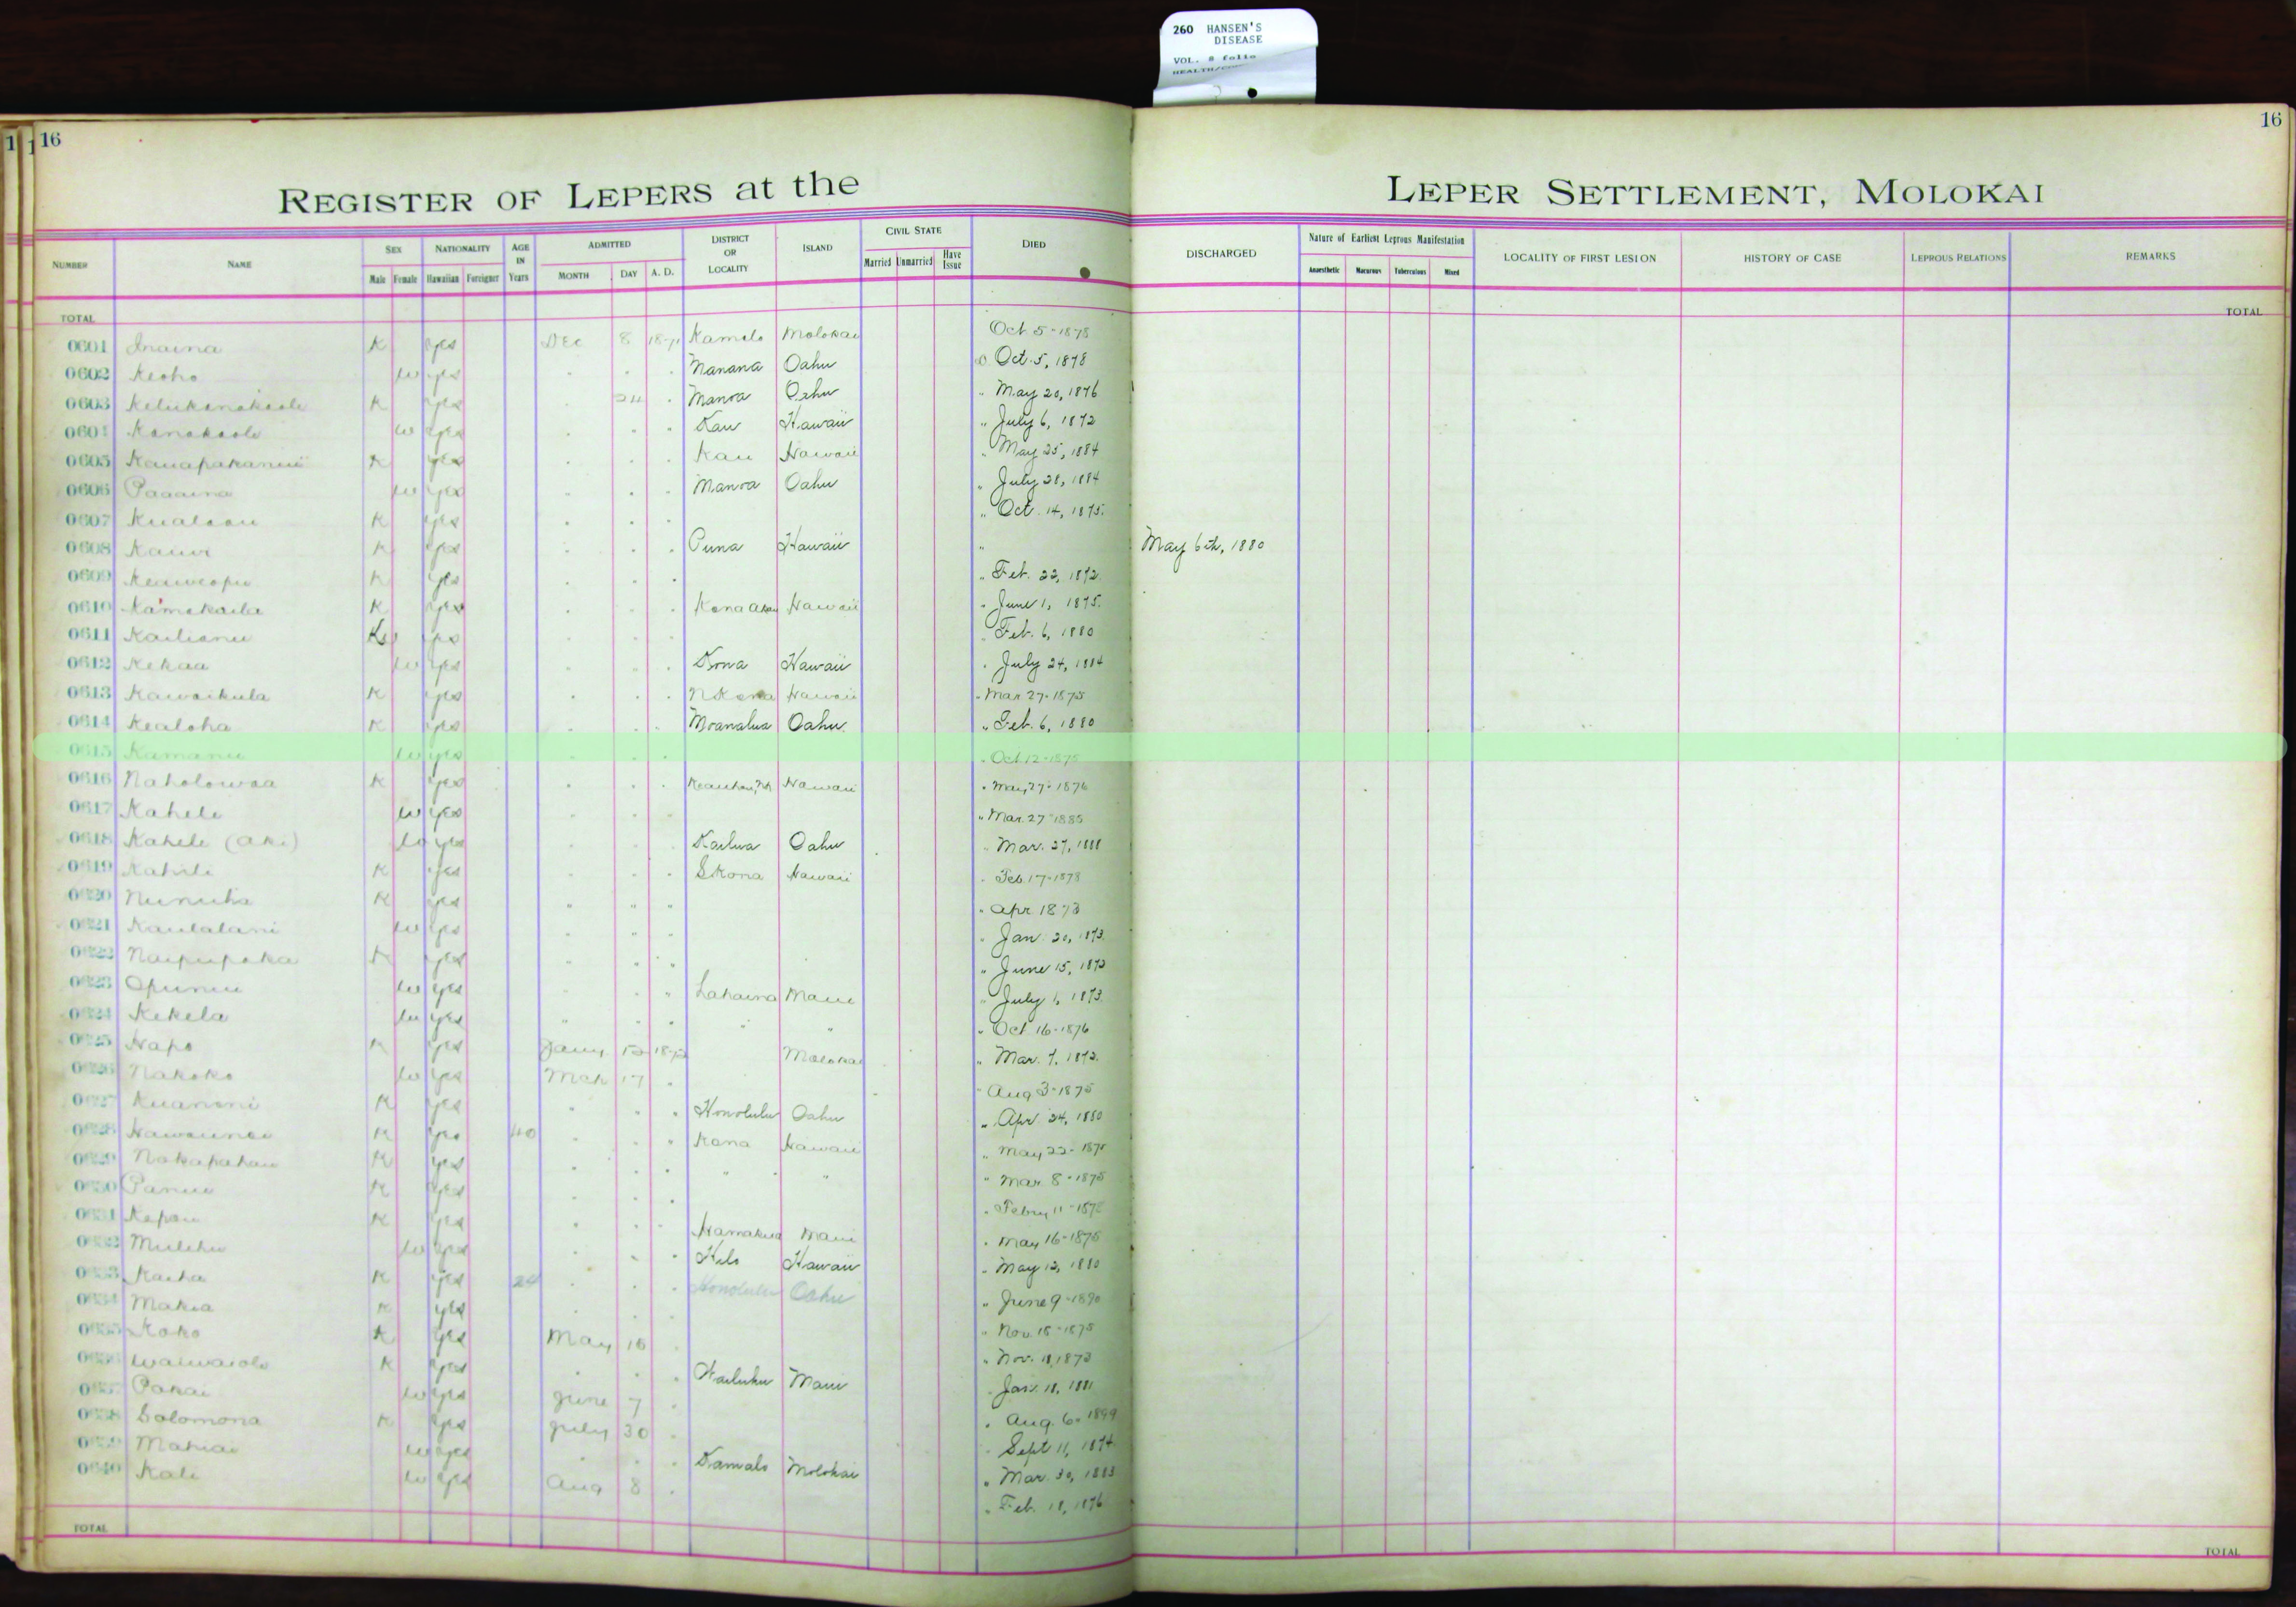 260 HANSEN'S
DISEASE
VOL. 8 folio
16
16
REGISTER OF LEPERS at the
LEPER SETTLEMENT, MOLOKAI
NUMBER NAME SEX Male Female NATIONALITY Hawaiian Foreigner AGE IN Years ADMITTED MONTH DAY A. D. DISTRICT OR LOCALITY ISLAND CIVIL STATE Married Unmarried Have Issue DIED DISCHARGED Nature of Earliest Leprous Manifestation Anaesthetic Macurous Tuberculous Mixed LOCALITY OF FIRST LESION HISTORY OF CASE LEPROUS RELATIONS REMARKS
TOTAL TOTAL
0601 Inaina K yes Dec 8 1871 Kamalo Molokai Oct 5-1878
0602 Keoho w yes . . . Manana Oahu Oct. 5, 1878
0603 K yes . 24 . Manoa Oahu " May 20, 1876
0604 Kanakaole w yes . . . Kau Hawaii " July 6, 1872
0605 K yes . . . Kau Hawaii " May 25, 1884
0606 Paaaina w yes . . . Manoa Oahu " July 28, 1884
0607 Kualaau K yes . . . " Oct. 14, 1875.
0608 Kauwi K yes . . . Puna Hawaii " May 6th, 1880
0609 Keaweopu K yes . . . " Feb. 22, 1872.
0610 Kamakaila K yes . . . Kona Akau Hawaii " June 1, 1875.
0611 Kailianu yes . . . " Feb. 6, 1880
0612 Kekaa w yes . . . Kona Hawaii " July 24, 1884
0613 Kawaikula K yes . . . N Kona Hawaii " Mar 27-1875
0614 Kealoha K yes . . . Moanalua Oahu " Feb. 6, 1880
0615 Kamanu w yes . . . " Oct 12-1875
0616 Naholowaa K yes . . . Hawaii " May 27-1876
0617 Kahele w yes . . . " Mar. 27-1885
0618 Kahele (aki) w yes . . . Kailua Oahu " Mar. 27, 1888
0619 Kahili K yes . . . S Kona Hawaii " Feb. 17-1878
0620 Nunuha K yes " " " " Apr. 1873
0621 Kaulalani w yes . " . " Jan. 20, 1873.
0622 Naipupaka K yes . . " " June 15, 1872
0623 Opunui w yes . . " Lahaina Maui " July 1, 1873.
0624 Kekela w yes " . . " " " Oct 16-1876
0625 Napo K yes Jany 12 1872 Molokai " Mar. 7, 1872.
0626 Nakoko w yes Mch 17 . " Aug 3-1875
0627 Kuanoni K yes . . . Honolulu Oahu " Apr. 24, 1880
0628 K yes 40 . . " Kona Hawaii " May 22-1875
0629 Nakapahau K yes . . . " " " Mar. 8-1875
0630 Panui K yes . . . " Febry 11-1875
0631 Kapau K yes . . . Hamakua Maui " May 16-1875
0632 Mulehu w yes . . . Hilo Hawaii " May 12, 1880
0633 Kaiha K yes 24 . . . Honolulu Oahu " June 9-1890
0634 Makia K yes . . . " Nov. 18-1875
0635 Koko K yes May 16 . " Nov. 11, 1873
0636 Waiwaiole K yes . . . Wailuku Maui " Jan. 18, 1881
0637 Pakai w yes June 7 . " Aug. 6-1899
0638 Solomona K yes July 30 . " Sept 11, 1874
0639 Mahiai w yes . . . Kamalo Molokai " Mar. 30, 1883
0640 Kali w yes Aug 8 . " Feb. 18, 1876
TOTAL TOTAL